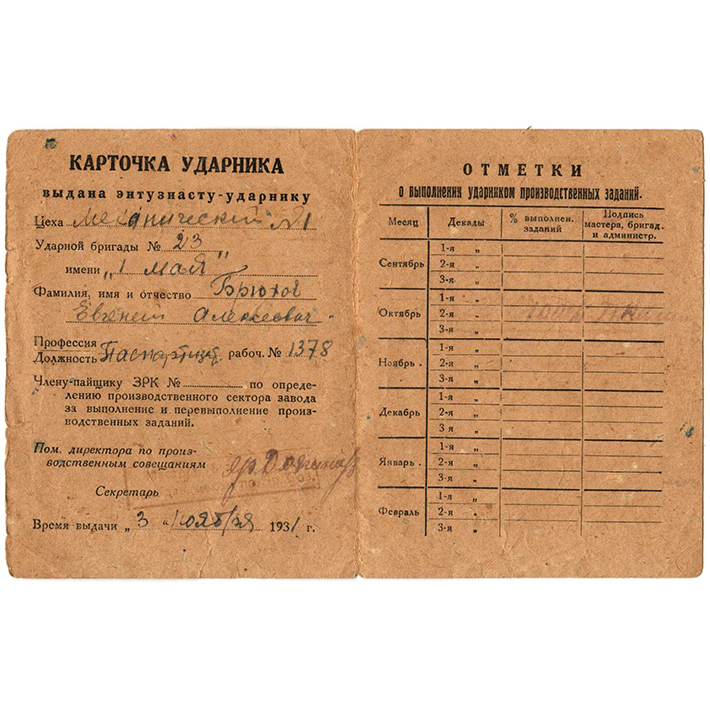 КАРТОЧКА УДАРНИКА
выдана энтузиасту-ударнику
Цеха Механический №1
Ударной бригады № 23
имени „1 мая"
Фамилия, имя и отчество Брюхов
Евгений Алексеевич
Профессия
Должность Паспортизат. рабоч. № 1378
Члену-пайщику ЗРК № по опреде-
лению производственного сектора завода
за выполнение и перевыполнение произ-
водственных заданий.
Пом. директора по произ-
водственным совещаниям
Секретарь
Время выдачи „3" ноября 1931 г.
ОТМЕТКИ
о выполнении ударником производственных заданий.
Месяц Декады % выполнен. заданий Подпись мастера, бригад. и администр.
Сентябрь 1-я „
2-я „
3-я „
Октябрь 1-я „
2-я „
3-я „
Ноябрь 1-я „
2-я „
3-я „
Декабрь 1-я „
2-я „
3 я „
Январь 1-я „
2-я „
3-я „
Февраль 1-я „
2-я „
3-я „